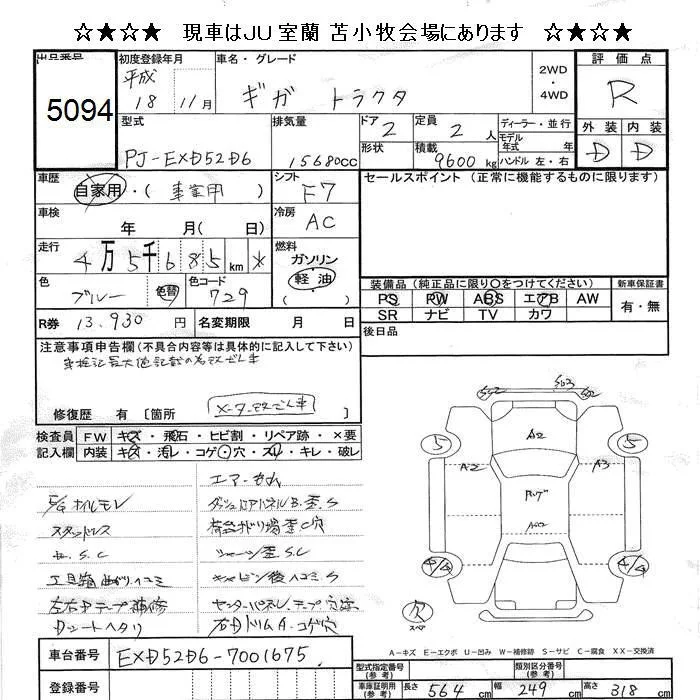 ☆★☆★☆ 現車はＪＵ室蘭 苫小牧会場にあります ☆★☆★☆
出品番号 初度登録年月 車名・グレード 2WD 評価点
5094 平成 18 11月 ギガ トラクタ ・4WD R
型式 排気量 ドア 定員 ディーラー・並行 外装 内装
PJ-EXD52D6 15680CC 2 2人 モデル年式 年 D D
形状 積載 9600kg ハンドル 左・右
車歴 シフト セールスポイント（正常に機能するものに限ります）
自家用・（事家用） F7
車検 年 月（ 日） 冷房 AC
走行 4万5千685km * 燃料 ガソリン
色 ブルー 色替 色コード 729 軽油 （ ）
装備品（純正品に限り○をつけてください） 新車保証書
PS PW ABS エアB AW 有・無
SR ナビ TV カワ
R券 13,930円 名変期限 月 日 後日品
注意事項申告欄（不具合内容等は具体的に記入して下さい）
修復歴 有〔箇所
検査員 FW キズ・飛石・ヒビ割・リペア跡・×要
記入欄 内装 キズ・汚レ・コゲ・穴・スレ・キレ・破レ
S02 S03 S02
A2
5 5
A2 A3
A02
4/4 4/4
欠 スペア
E/G オイルモレ
スタッドレス
シャーシ歪 S.C
工具箱曲がりヘコミ キャビン後ヘコミ S
左右テープ補修
Dシートヘタリ
A－キズ E－エクボ U－凹み W－補修跡 S－サビ C－腐食 XX－交換済
車台番号 EXD52D6-7001675
登録番号
型式指定番号（参考） 類別区分番号（参考）
車庫証明用（参考） 長さ 564cm 幅 249cm 高さ 318cm